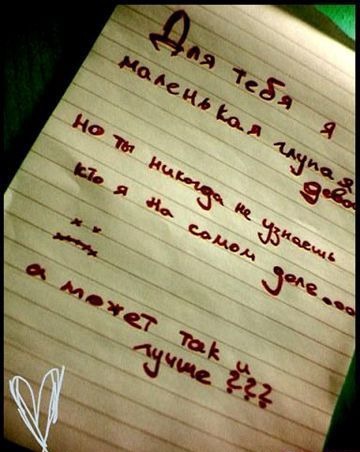 Для тебя я
маленькая глупая
дево
но ты никогда не узнаешь
кто я на самом деле....
а может так и
лучше ???